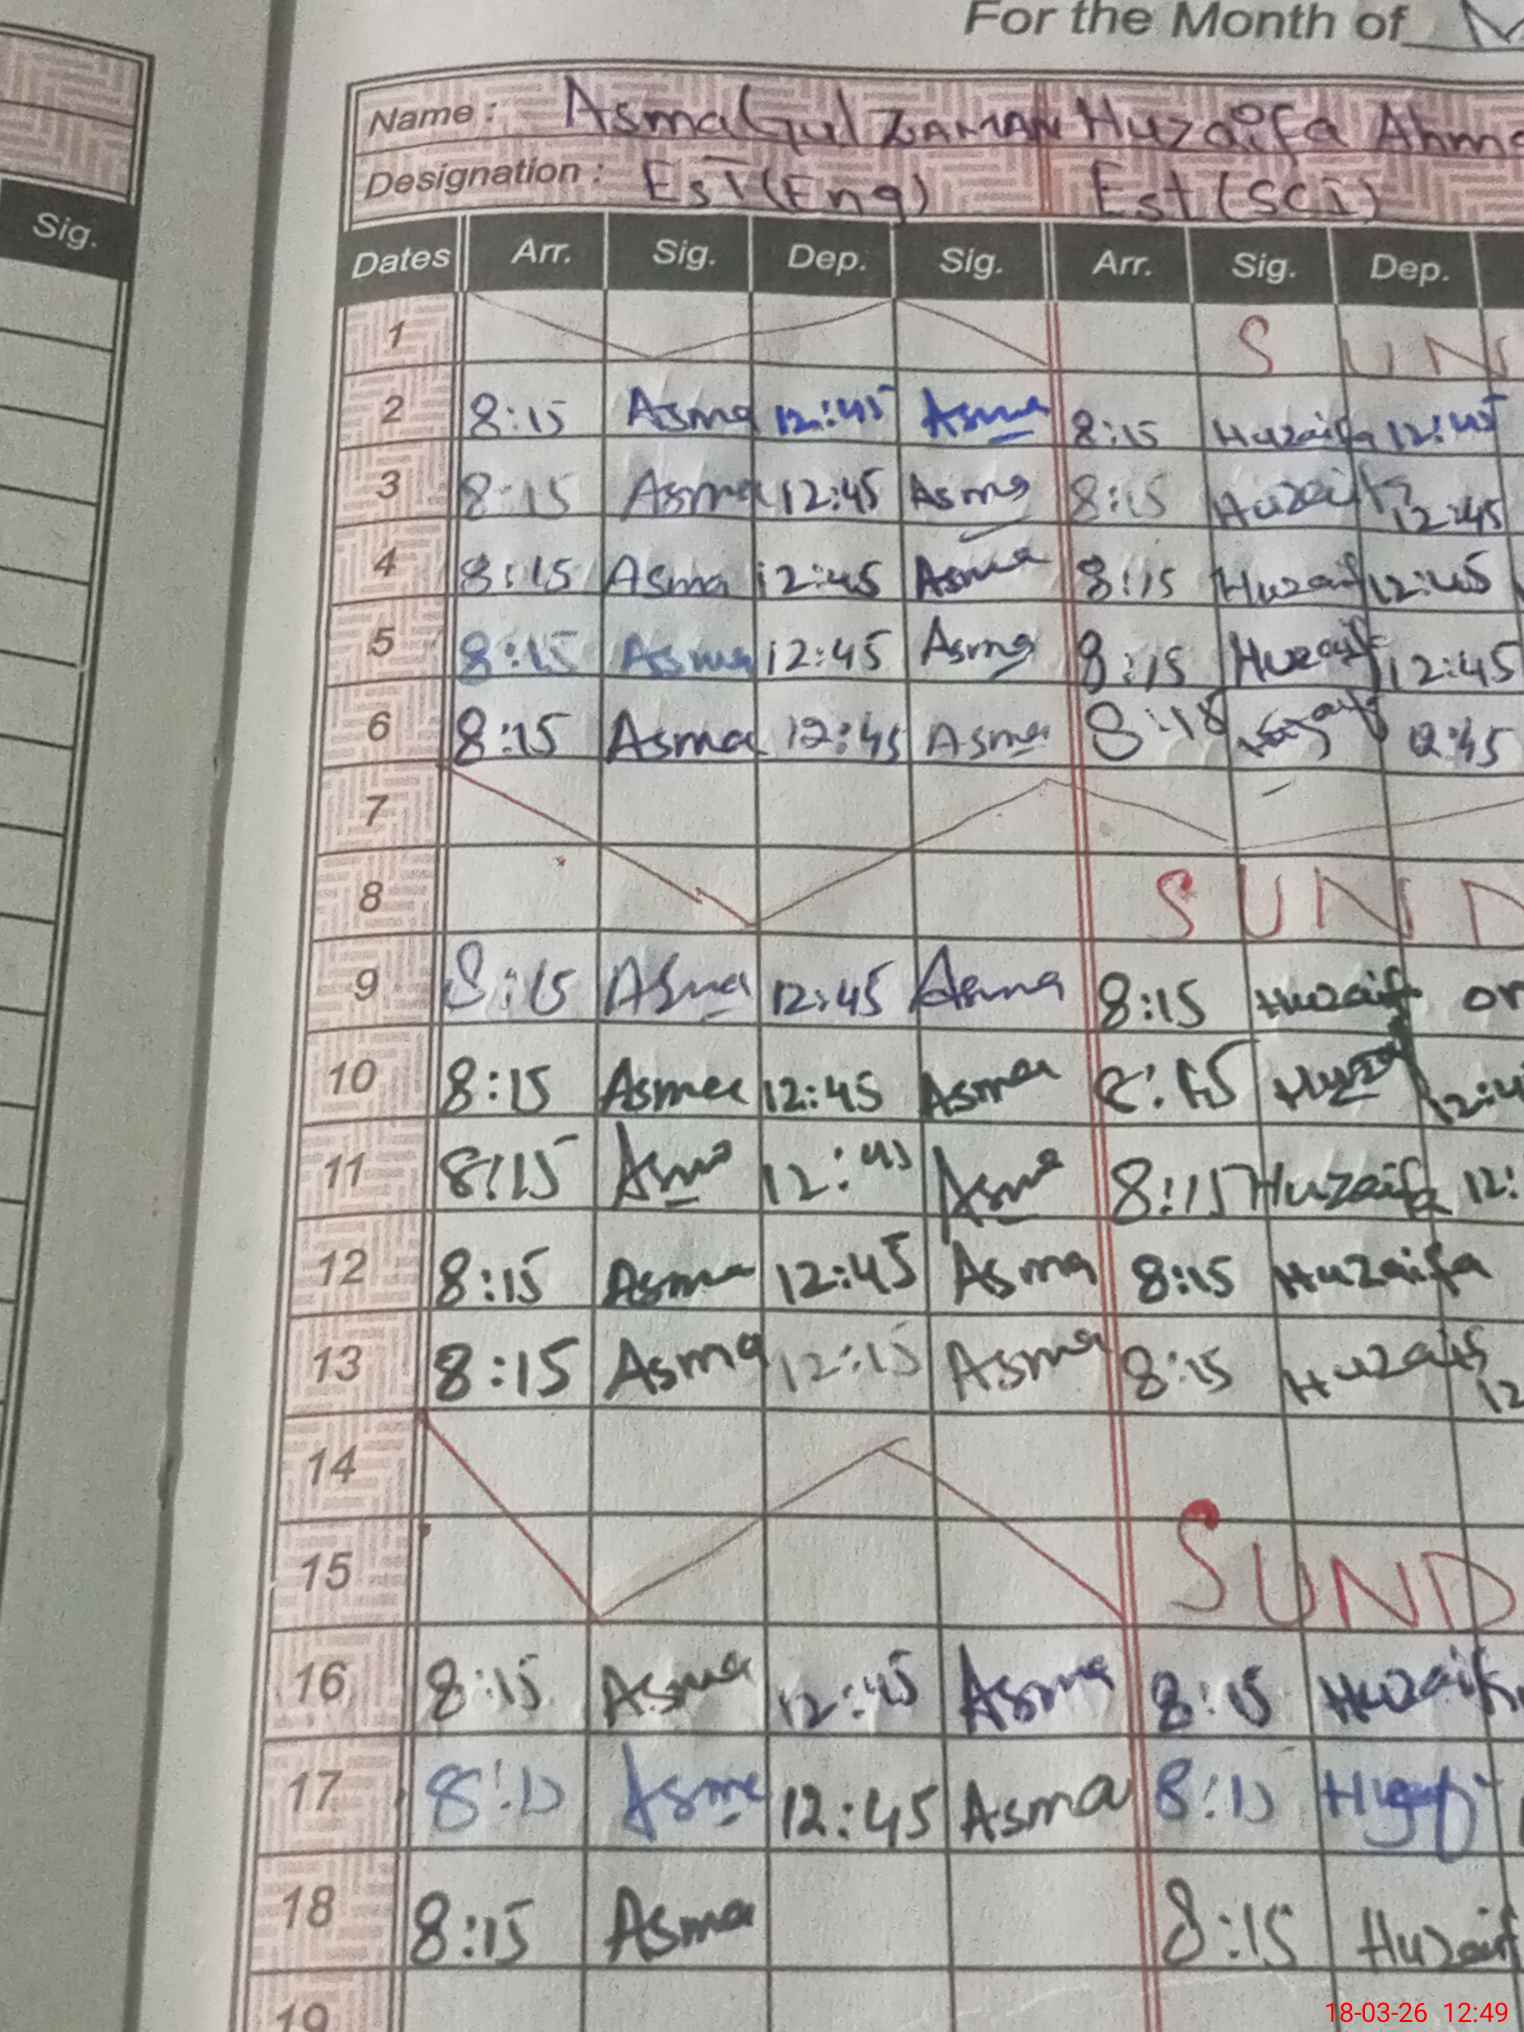 For the Month of
Name : Asma Gul ZAMAN Huzaifa Ahm
Designation : EST (Eng) Est (SCI)
Sig.
Dates Arr. Sig. Dep. Sig. Arr. Sig. Dep.
1 SUN
2 8:15 Asma 12:45 Asma 8:15 Huzaifa 12:45
3 8:15 Asma 12:45 Asma 8:15 Huzaifa 12:45
4 8:15 Asma 12:45 Asma 8:15 Huzaif 12:45
5 8:15 Asma 12:45 Asma 8:15 Huzaif 12:45
6 8:15 Asma 12:45 Asma 12:45
7
8 SUND
9 8:15 Asma 12:45 Asma 8:15 Huzaif on
10 8:15 Asma 12:45 Asma Huzaf 12:4
11 8:15 Asma 12:45 Asma 8:15 Huzaifa 12:
12 8:15 Asma 12:45 Asma 8:15 Huzaifa
13 8:15 Asma 12:15 Asma 8:15 Huzaif 12
14
15 SUND
16 8:15 Asma 12:45 Asma 8:15 Huzaif
17 8:15 Asma 12:45 Asma 8:15
18 8:15 Asma 8:15 Huzaif
19
18-03-26 12:49